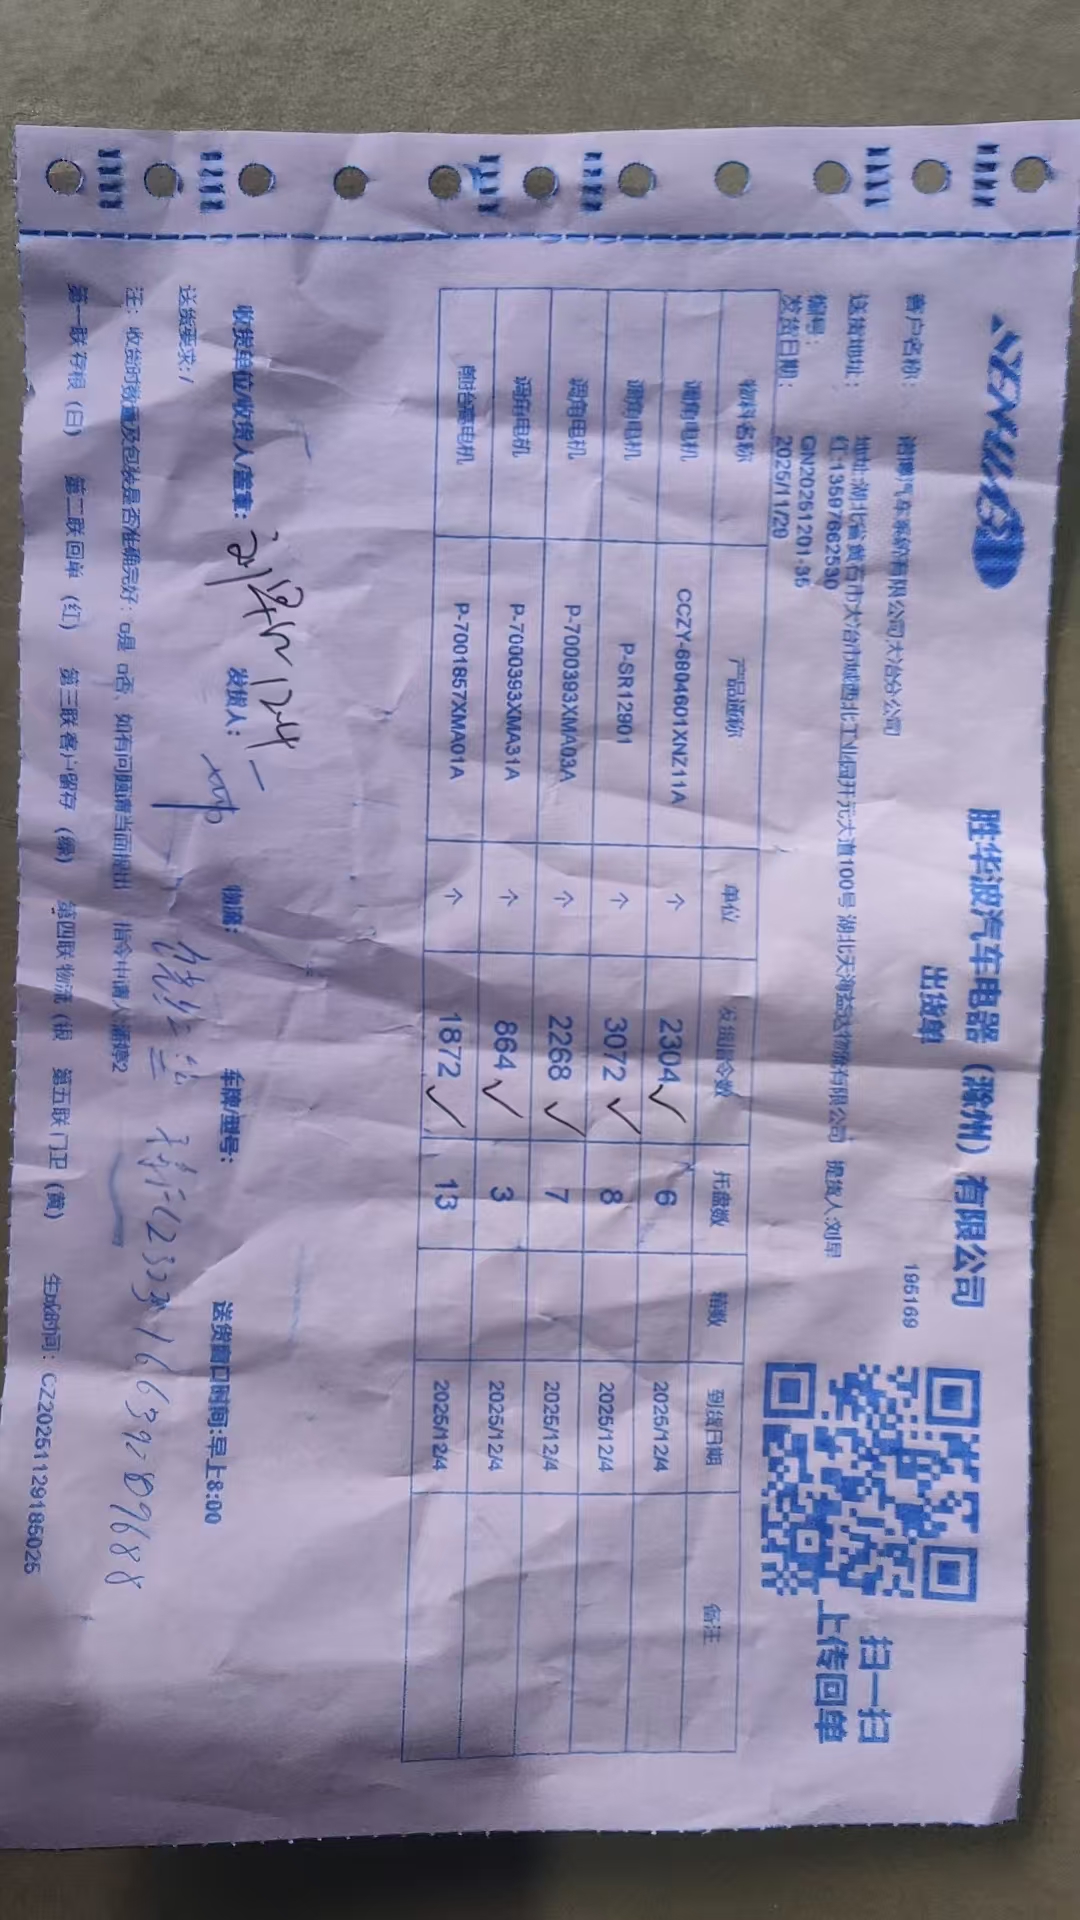 SENWAB
胜华波汽车电器（滁州）有限公司
出货单
195169
扫一扫
上传回单
客户名称： 汽车系统有限公司大冶分公司
送货地址： 地址:湖北省黄石市大冶市城西北工业园开元大道100号 湖北天海益达物流有限公司 提货人:刘早
红:13597662530
编号： GN20251201-35
发货日期： 2025/11/29
物料名称 产品简称 单位 发货指令数 托盘数 箱数 到货日期 备注
调角电机 CCZY-6804601XNZ11A 个 2304 6 2025/12/4
调角电机 P-SR12901 个 3072 8 2025/12/4
调角电机 P-7000393XMA03A 个 2268 7 2025/12/4
调角电机 P-7000393XMA31A 个 864 3 2025/12/4
前抬高电机 P-7001857XMA01A 个 1872 13 2025/12/4
收货单位/收货人/盖章： 12.4 发货人： 物流： 车牌/型号： 送货窗口时间:早上8:00
送货要求:/
16639289688
注：收货时数量及包装是否准确完好：□是 □否、如有问题请当面提出 指令申请人:潘婷2
第一联存根（白） 第二联回单（红） 第三联客户留存（绿） 第四联物流（银 第五联门卫（黄） 生成时间：CZ20251129185025